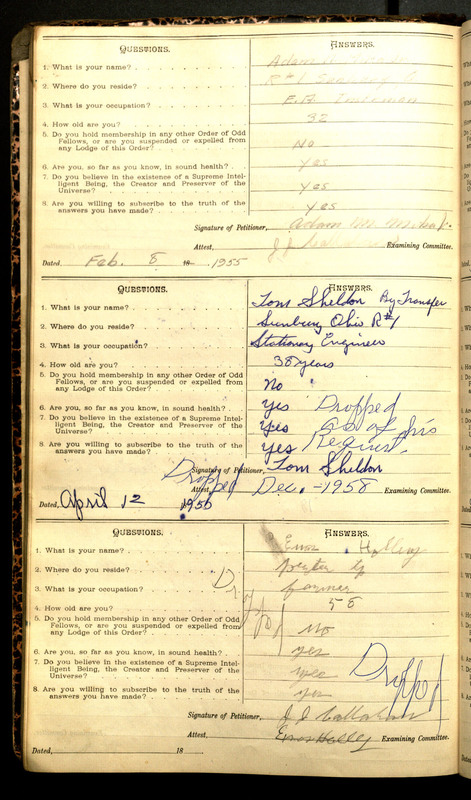 QUESTIONS. ANSWERS.
1. What is your name? Adam
2. Where do you reside? R#1 Sunbury O
3. What is your occupation?
4. How old are you? 32
5. Do you hold membership in any other Order of Odd
Fellows, or are you suspended or expelled from
any Lodge of this Order? No
6. Are you, so far as you know, in sound health? Yes
7. Do you believe in the existence of a Supreme Intel-
ligent Being, the Creator and Preserver of the
Universe? Yes
8. Are you willing to subscribe to the truth of the
answers you have made? Yes
Signature of Petitioner, Adam M.
Attest, J J Examining Committee.
Dated, Feb. 8 18 1955
QUESTIONS. ANSWERS.
1. What is your name? Tom Sheldon By Transfer
2. Where do you reside? Sunbury Ohio R#1
3. What is your occupation? Stationary Engineer
4. How old are you? 38 years
5. Do you hold membership in any other Order of Odd
Fellows, or are you suspended or expelled from
any Lodge of this Order? No
6. Are you, so far as you know, in sound health? Yes Dropped
7. Do you believe in the existence of a Supreme Intel-
ligent Being, the Creator and Preserver of the
Universe? Yes as of his
8. Are you willing to subscribe to the truth of the
answers you have made? Yes Request.
Signature of Petitioner, Tom Sheldon
Dropped Attest, Dec. - 1958 Examining Committee.
Dated, April 12 1956
QUESTIONS. ANSWERS.
1. What is your name? Enos Holley
2. Where do you reside?
3. What is your occupation? farmer
4. How old are you? 58
Dropped
5. Do you hold membership in any other Order of Odd
Fellows, or are you suspended or expelled from
any Lodge of this Order? No
6. Are you, so far as you know, in sound health? yes
7. Do you believe in the existence of a Supreme Intel-
ligent Being, the Creator and Preserver of the
Universe? yes Dropped
8. Are you willing to subscribe to the truth of the
answers you have made? yes
Signature of Petitioner, J J Callahan
Attest, Enos Holley Examining Committee.
Dated, 18